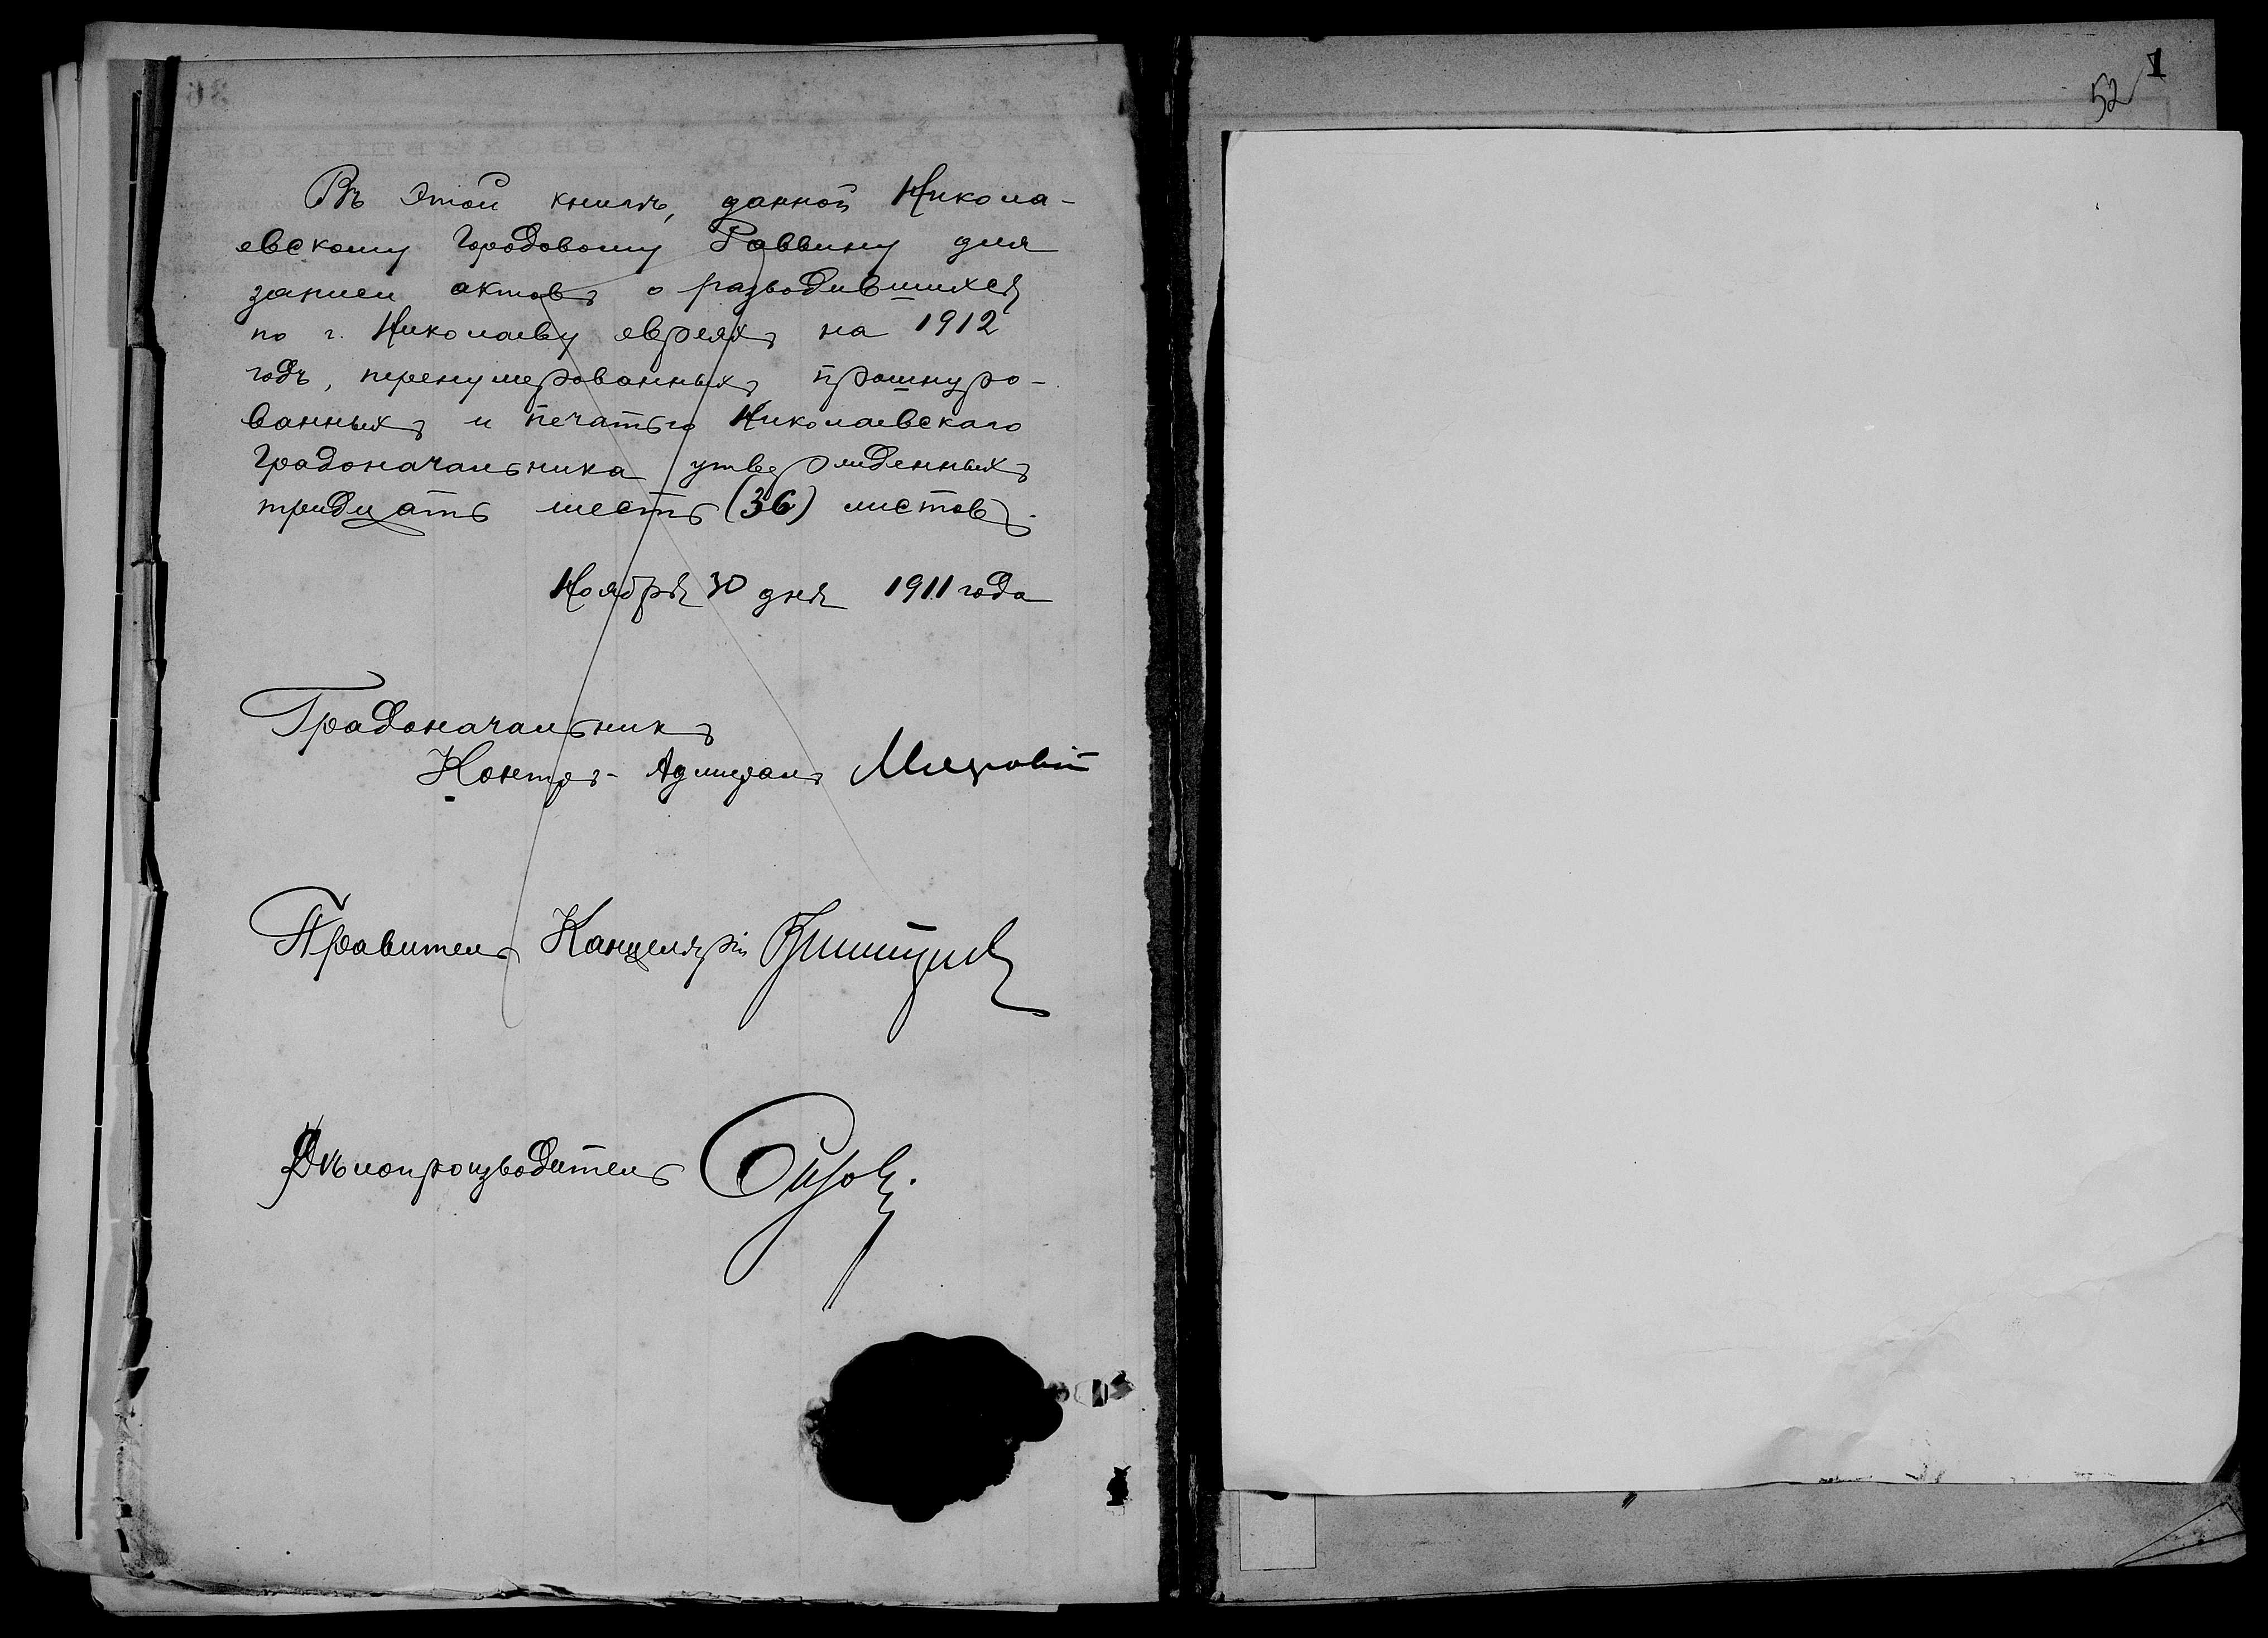 Въ этой книгѣ, данной Никола-
евскому Городовому Раввину для
записи актовъ о разводившихся
по г. Николаеву евреяхъ на 1912
годъ, перенумерованныхъ, прошнуро-
ванныхъ и печатью Николаевскаго
Градоначальника утвержденныхъ
тридцать шесть (36) листовъ.
Ноября 30 дня 1911 года
Градоначальникъ
Контръ-Адмиралъ
Правитель Канцеляріи
Дѣлопроизводитель
1
52